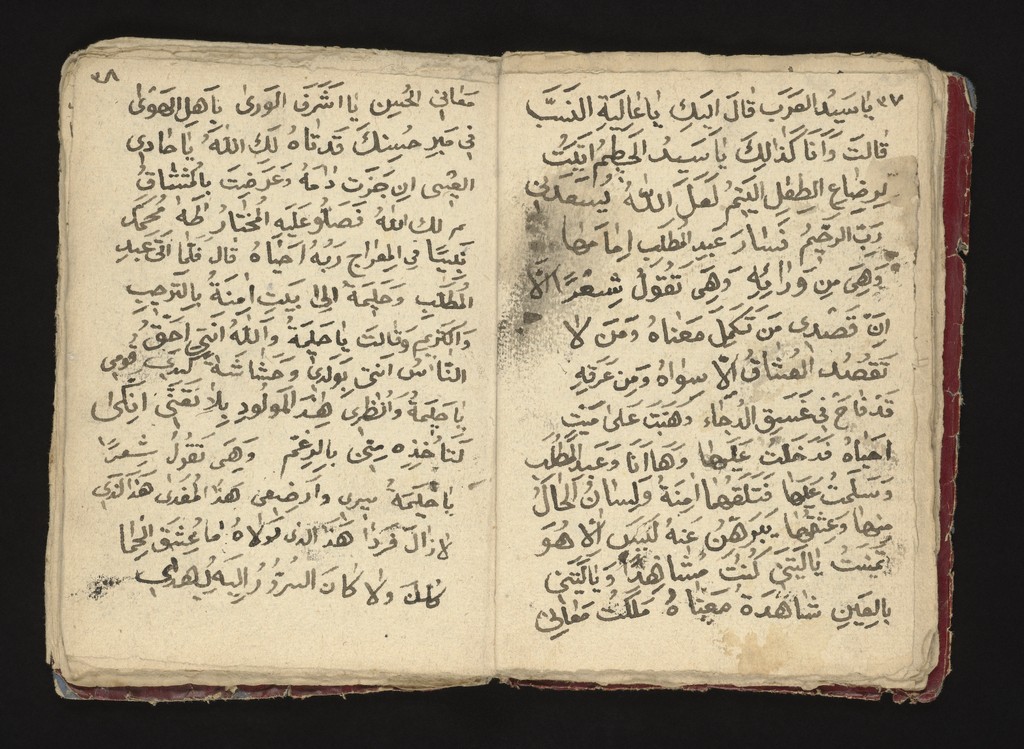 ٣٧
يا سيد العرب قال اليك يا عالية النسب
قالت وانا كذالك يا سيد الحطيم اتيت
لرضاع الطفل اليتيم لعل الله يسعدني
رب الرحيم فسار عبد المطلب امامها
وهى من ورائه وهى تقول شعرا الا
ان قصدى من تكمل معناه ومن لا
تقصد العشاق الا سواه ومن عرفه
قد فاح فى غسق الدجاء وهبت على ميت
احياه فدخلت عليها وها انا وعبد المطلب
وسلمت عليها فتلقهما امنة ولسان الحال
عنه ليس الا هو
تمنيت ياليتني كنت مشاهدا وياليتني
بالعين شاهدة معناه ملكت معاني
٣٨
معاني الحسن يا اشرف الورى يا هل الهوى
في حسنك قد تاه لك الله يا حادى
العيس ان جزت رامه وعرضت بالمشتاق
لك الله فصلو عليه المختار طه محمد
نبينا في المعراج ربه احياه قال فلما اتى عبد
المطلب وحليمة الى بيت امنة بالترحيب
والكريم وقالت يا حليمة والله انتي احق
الناس انتى بولدي وحشاشة كبدي قومي
يا حليمة وانظرى هذ المولود بلا تعني انكى
لتأخذه منى بالرغم وهى تقول شعرا
يا حليمة سيرى وارضعى هذا المفدى هذ الذى
لا زال فردا هذ الذى لولاه ما عشق الحما
كلا ولا كان السرور اليه يهدى